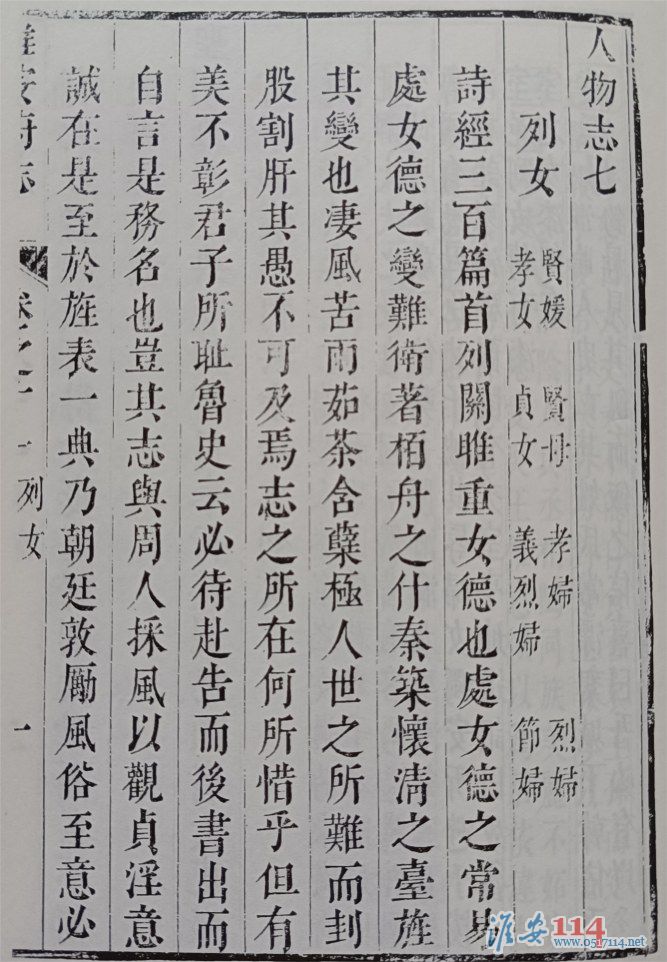 人物志七
列女 賢媛 賢母 孝婦 烈婦
孝女 貞女 義烈婦 節婦
詩經三百篇首列關雎重女德也處女德之常易
處女德之變難衛著栢舟之什秦築懷清之臺旌
其變也凄風苦雨茹荼含蘗極人世之所難而刲
股割肝其愚不可及焉志之所在何所惜乎但有
美不彰君子所耻魯史云必待赴告而後書出而
自言是務名也豈其志與周人採風以觀貞淫意
誠在是至於旌表一典乃朝廷敦勵風俗至意必
淮安府志 卷之 列女 一
淮安114
www.0517114.net